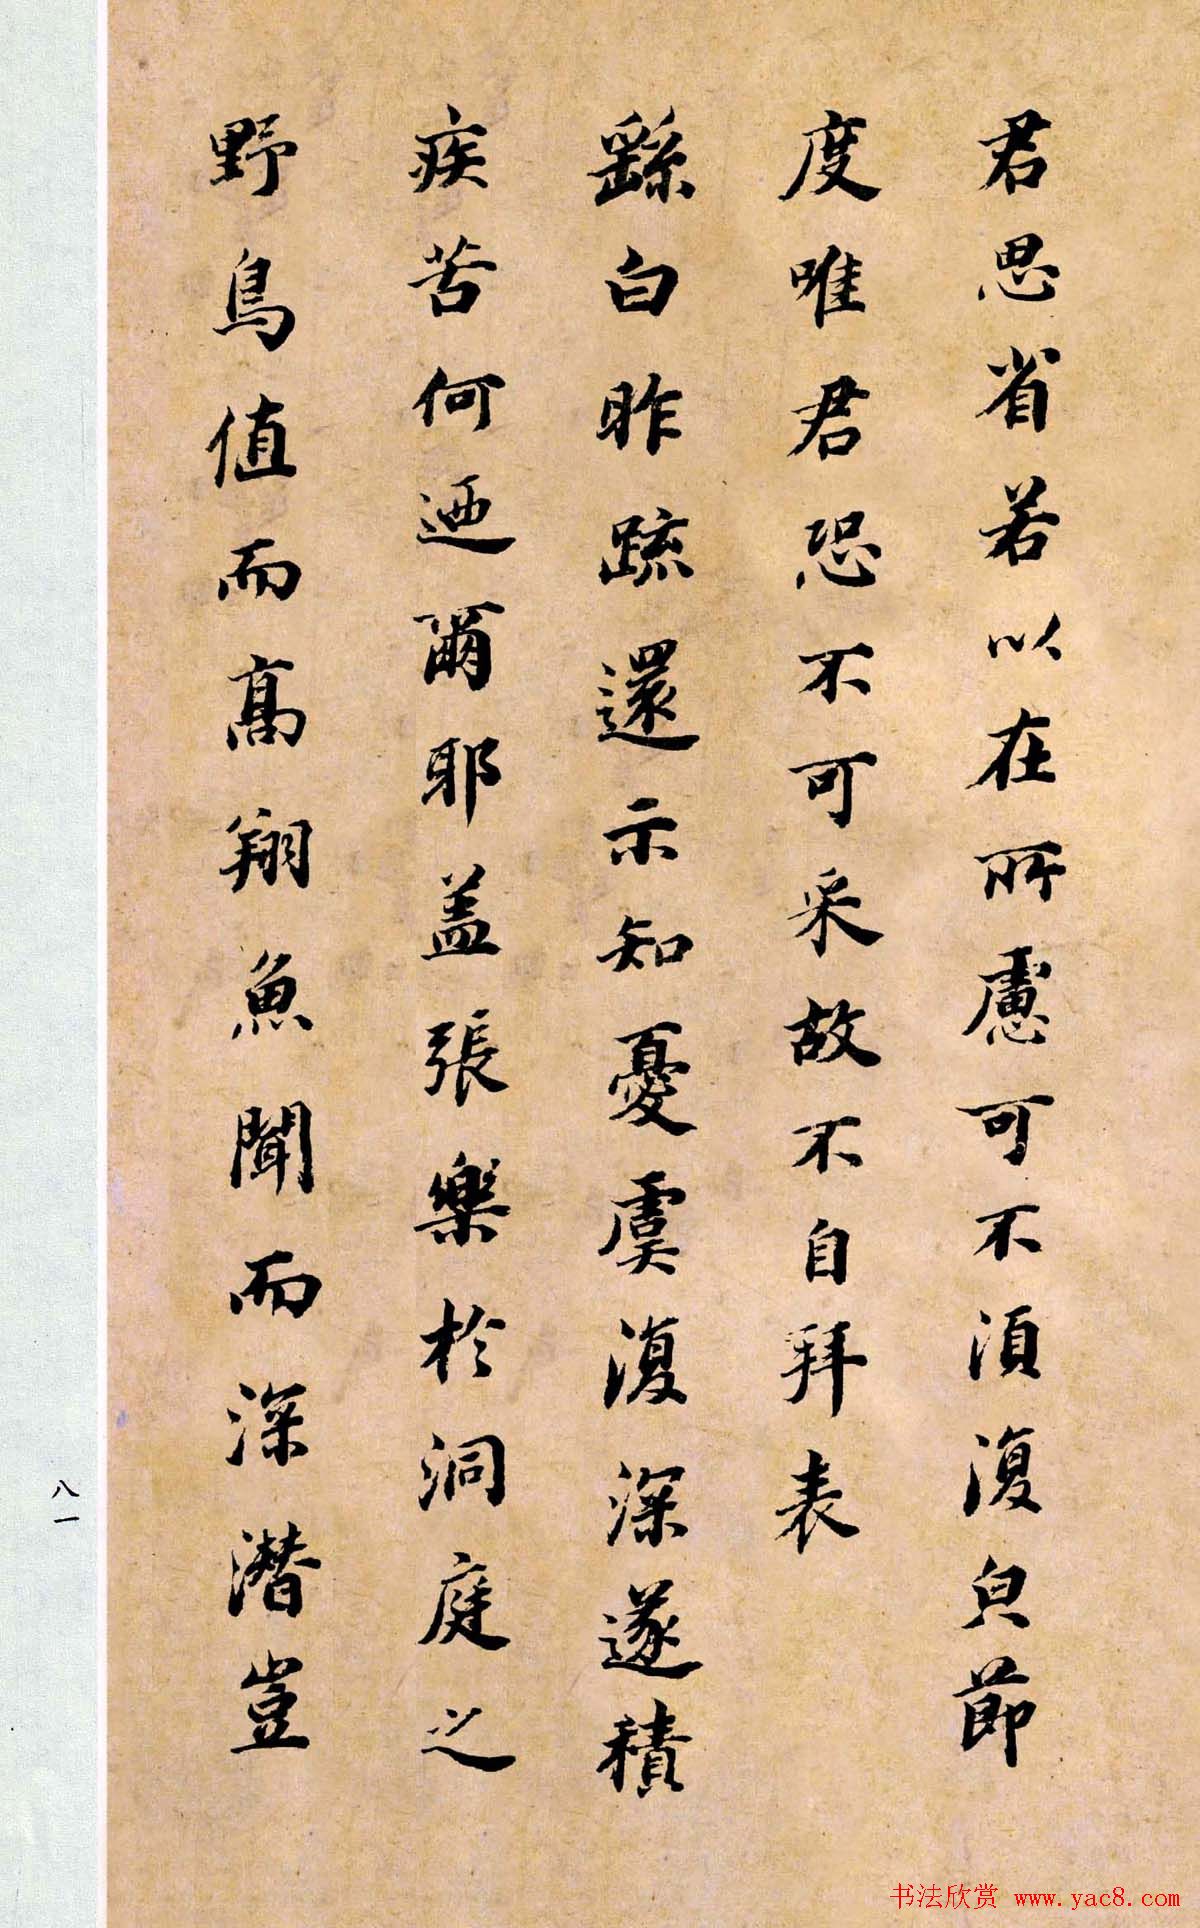 君思省若以在所慮可不須復皃節
度唯君恐不可采故不自拜表
繇白昨疏還示知憂虞復深遂積
疾苦何迺爾耶盖張樂於洞庭之
野鳥值而高翔魚聞而深潛豈
八一
书法欣赏 www.yac8.com